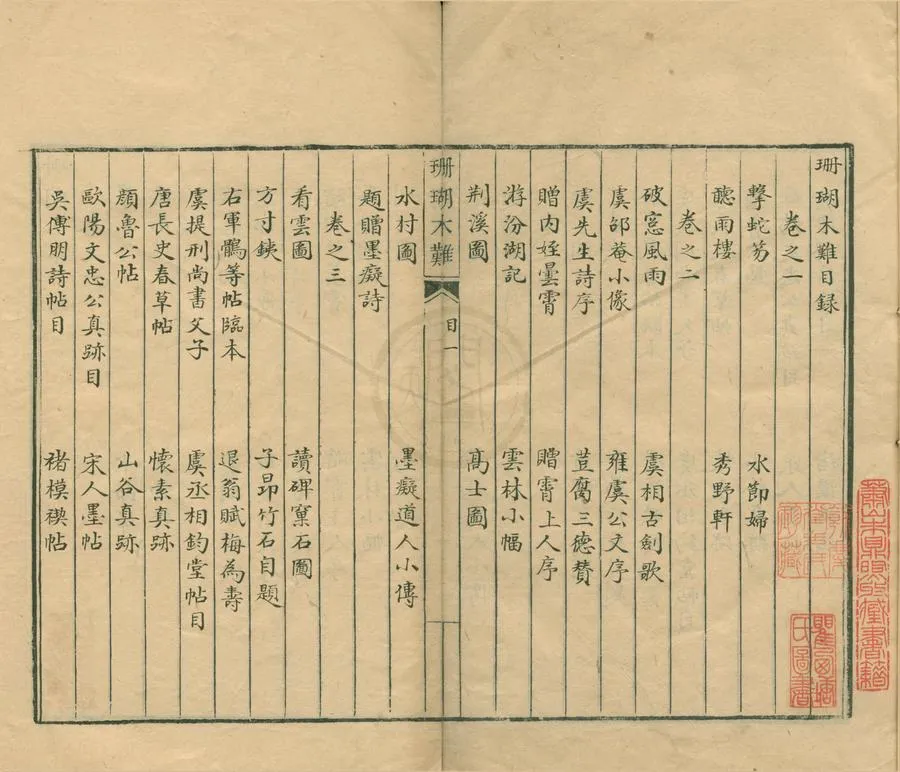 珊瑚木難目録
卷之一
擊蛇笏 水節婦
聽雨樓 秀野軒
卷之二
破窓風雨 虞相古劍歌
虞邵菴小像 雍虞公文序
虞先生詩序 荳腐三德贊
贈內姪曇霄 贈霄上人序
游汾湖記 雲林小幅
荆溪圖 髙士圖
珊瑚木難 目一
水村圖 墨癡道人小傳
題贈墨癡詩
卷之三
看雲圖 讀碑窠石圖
方寸銕 子昂竹石自題
右軍鶻等帖臨本 退翁賦梅為壽
虞提刑尚書父子 虞丞相鈞堂帖目
唐長史春草帖 懷素真跡
顔魯公帖 山谷真跡
歐陽文忠公真跡目 宋人墨帖
吳傅明詩帖目 褚模禊帖